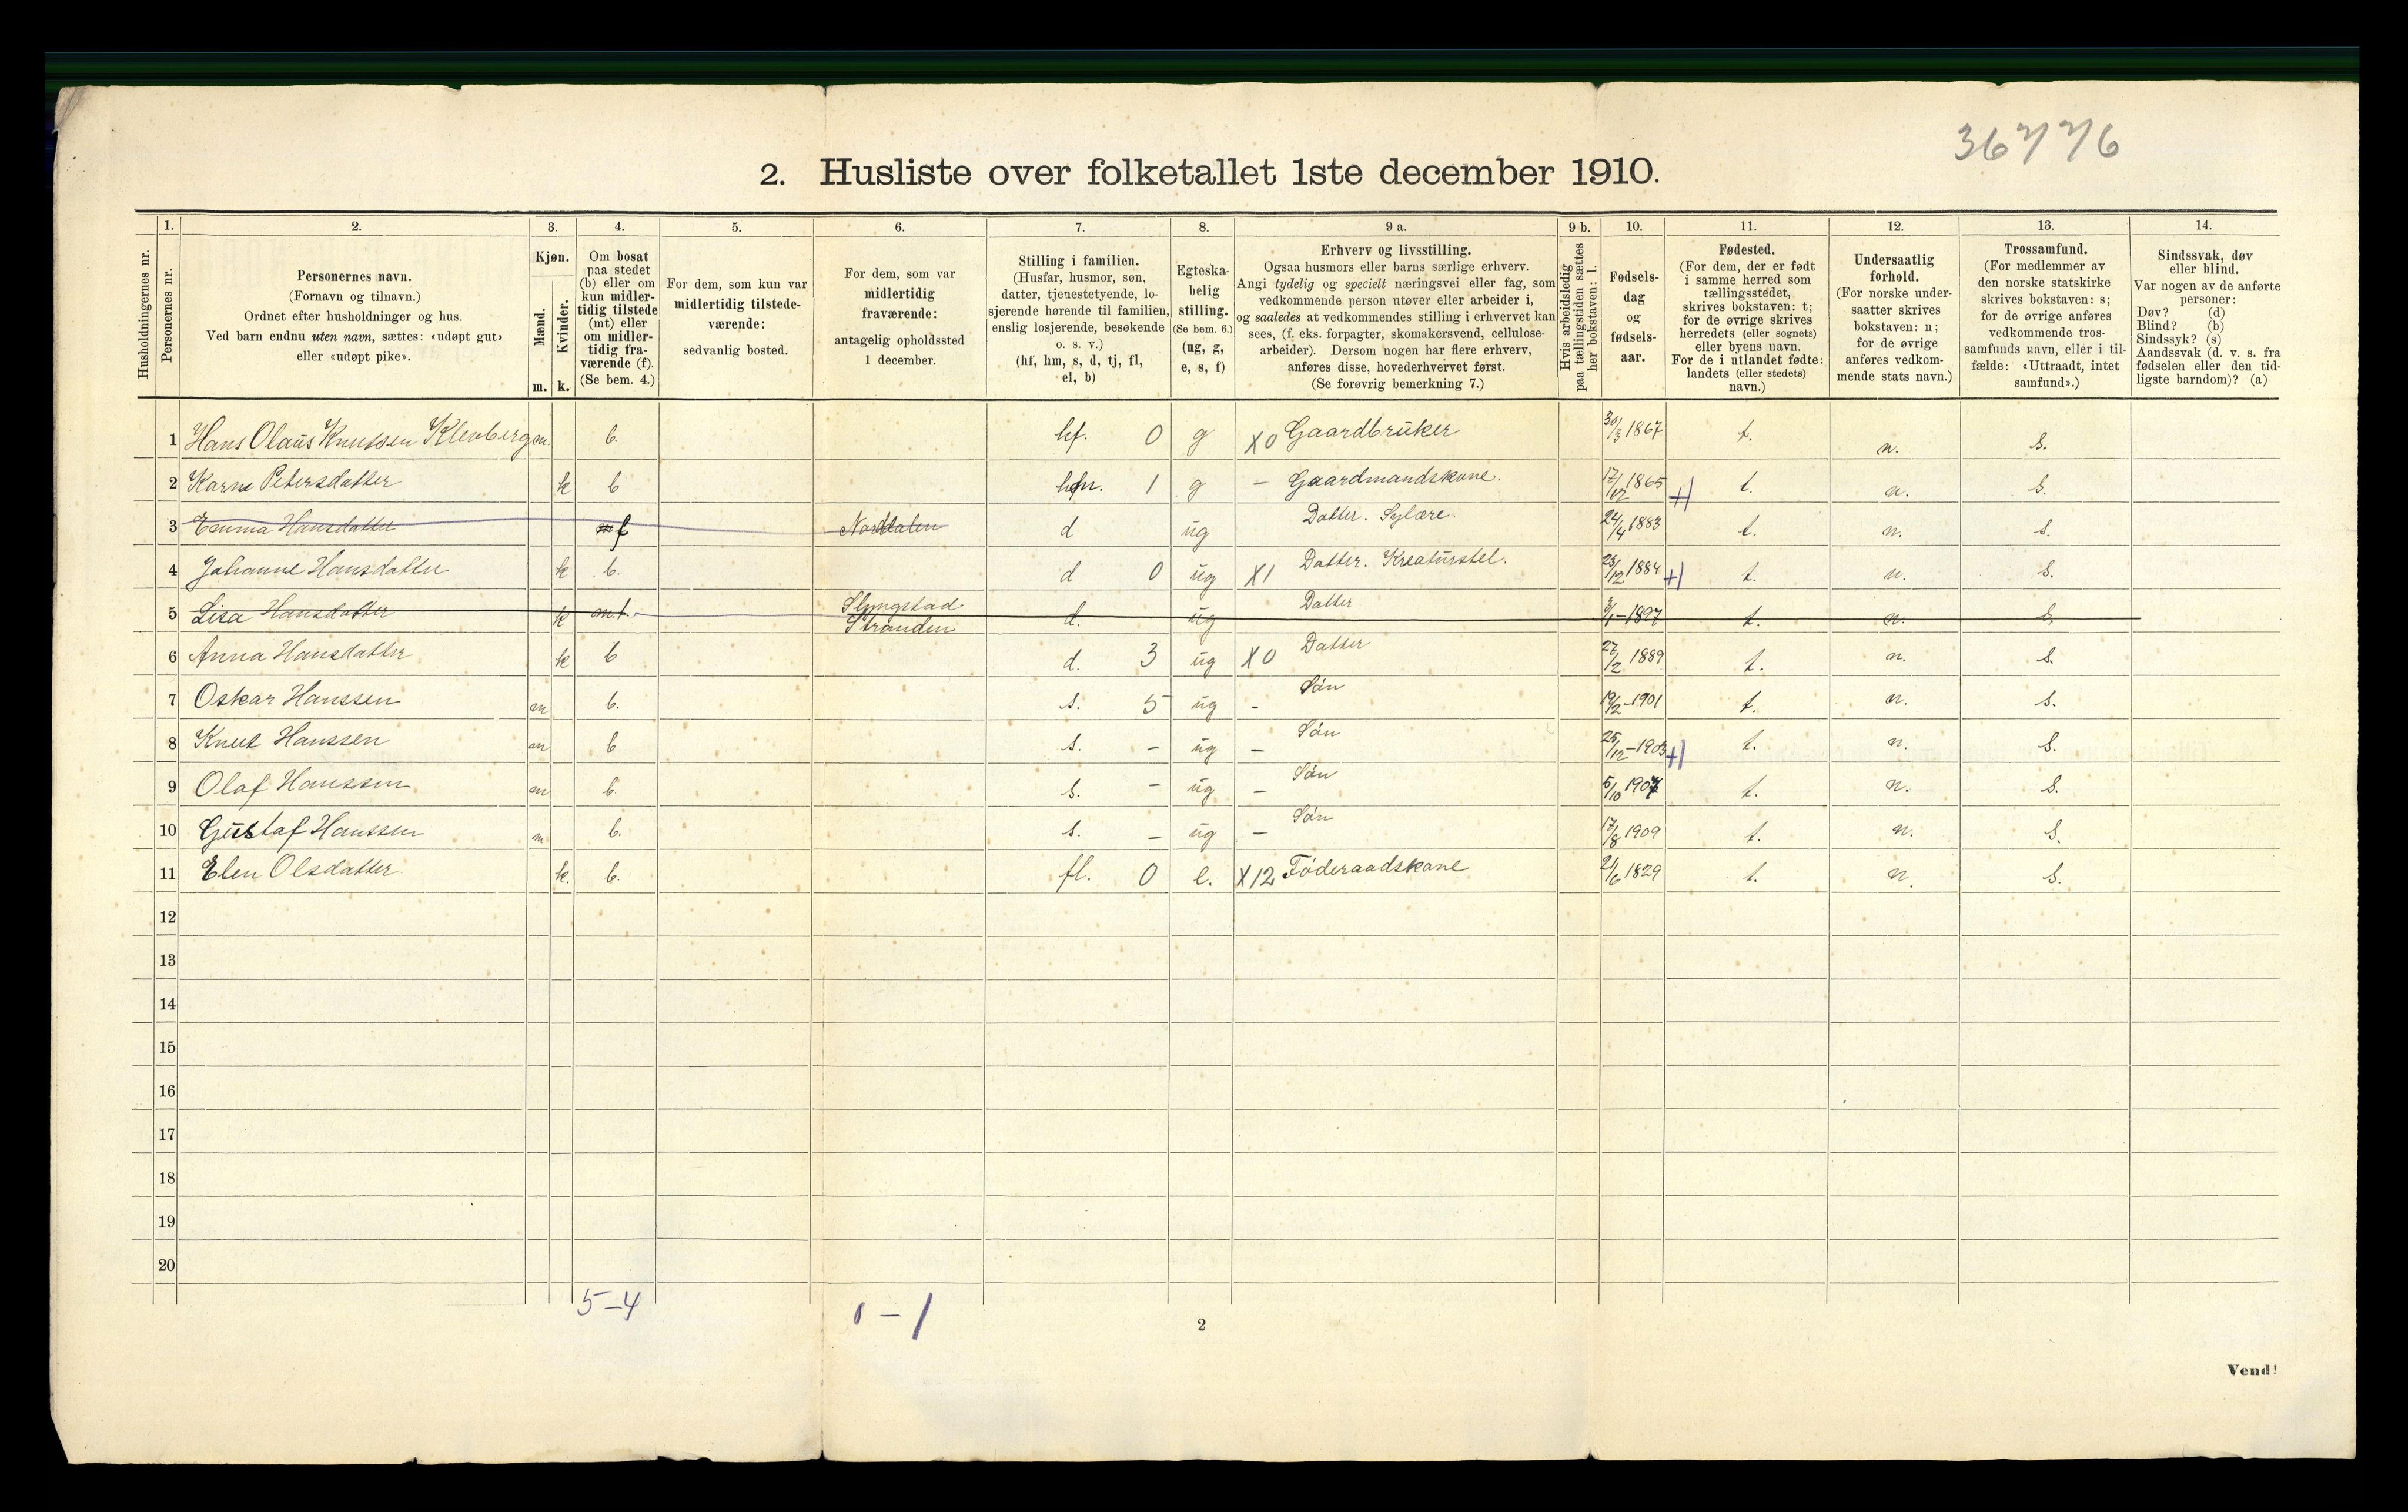 36776
2. Husliste over folketallet 1ste december 1910.
Husholdningernes nr.
1.
Personernes nr.
2.
Personernes navn.
(Fornavn og tilnavn.)
Ordnet efter husholdninger og hus.
Ved barn endnu uten navn, sættes: «udøpt gut»
eller «udøpt pike».
3.
Kjøn.
Mænd.
Kvinder.
m. k.
4.
Om bosat
paa stedet
(b) eller om
kun midler-
tidig tilstede
(mt) eller
om midler-
tidig fra-
værende (f).
(Se bem. 4.)
5.
For dem, som kun var
midlertidig tilstede-
værende:
sedvanlig bosted.
6.
For dem, som var
midlertidig
fraværende:
antagelig opholdssted
1 december.
7.
Stilling i familien.
(Husfar, husmor, søn,
datter, tjenestetyende, lo-
sjerende hørende til familien,
enslig losjerende, besøkende
o. s. v.)
(hf, hm, s, d, tj, fl,
el, b)
8.
Egteska-
belig
stilling.
(Se bem. 6.)
(ug, g,
e, s, f)
9 a.
Erhverv og livsstilling.
Ogsaa husmors eller barns særlige erhverv.
Angi tydelig og specielt næringsvei eller fag, som
vedkommende person utøver eller arbeider i,
og saaledes at vedkommendes stilling i erhvervet kan
sees, (f. eks. forpagter, skomakersvend, cellulose-
arbeider). Dersom nogen har flere erhverv,
anføres disse, hovederhvervet først.
(Se forøvrig bemerkning 7.)
9 b.
Hvis arbeidsledig
paa tællingstiden sættes
her bokstaven: l.
10.
Fødsels-
dag
og
fødsels-
aar.
11.
Fødested.
(For dem, der er født
i samme herred som
tællingsstedet,
skrives bokstaven: t;
for de øvrige skrives
herredets (eller sognets)
eller byens navn.
For de i utlandet fødte:
landets (eller stedets)
navn.)
12.
Undersaatlig
forhold.
(For norske under-
saatter skrives
bokstaven: n;
for de øvrige
anføres vedkom-
mende stats navn.)
13.
Trossamfund.
(For medlemmer av
den norske statskirke
skrives bokstaven: s;
for de øvrige anføres
vedkommende tros-
samfunds navn, eller i til-
fælde: «Uttraadt, intet
samfund».)
14.
Sindssvak, døv
eller blind.
Var nogen av de anførte
personer:
Døv? (d)
Blind? (b)
Sindssyk? (s)
Aandssvak (d. v. s. fra
fødselen eller den tid-
ligste barndom)? (a)
1 Hans Olaus Knutsen Klevberg m. b. hf. 0 g X0 Gaardbruker 30/3 1867 t. n. S.
2 Karne Petersdatter k b hm. 1 g – Gaardmandskone. 17/12 1865 +1 t. n. S.
3 Emma Hansdatter f Norddalen d ug Datter. Sylære. 24/4 1883 t. n. S.
4 Johanne Hansdatter k b. d 0 ug X1 Datter. Kreaturstel. 23/12 1884 +1 t. n. S.
5 Lisa Hansdatter k m.t. Slyngstad Stranden d. ug Datter 3/1-1897 t. n. S.
6 Anna Hansdatter k b d. 3 ug X0 Datter 27/2 1889 t. n. S.
7 Oskar Hanssen m b. s. 5 ug - Søn 19/2-1901 t. n. S.
8 Knut Hanssen m b s. – ug – Søn 25/12-1903 +1 t. n. S.
9 Olaf Hanssen m b. s. – ug – Søn 5/10 1907 t. n. S.
10 Gustaf Hanssen m b. s. – ug – Søn 17/8 1909 t. n. S.
11 Elen Olsdatter k. b. fl. 0 e. X12 Føderaadskone 21/6 1829 t. n. S.
12
13
14
15
16
17
18
19
20
5-4
1-1
2
Vend!